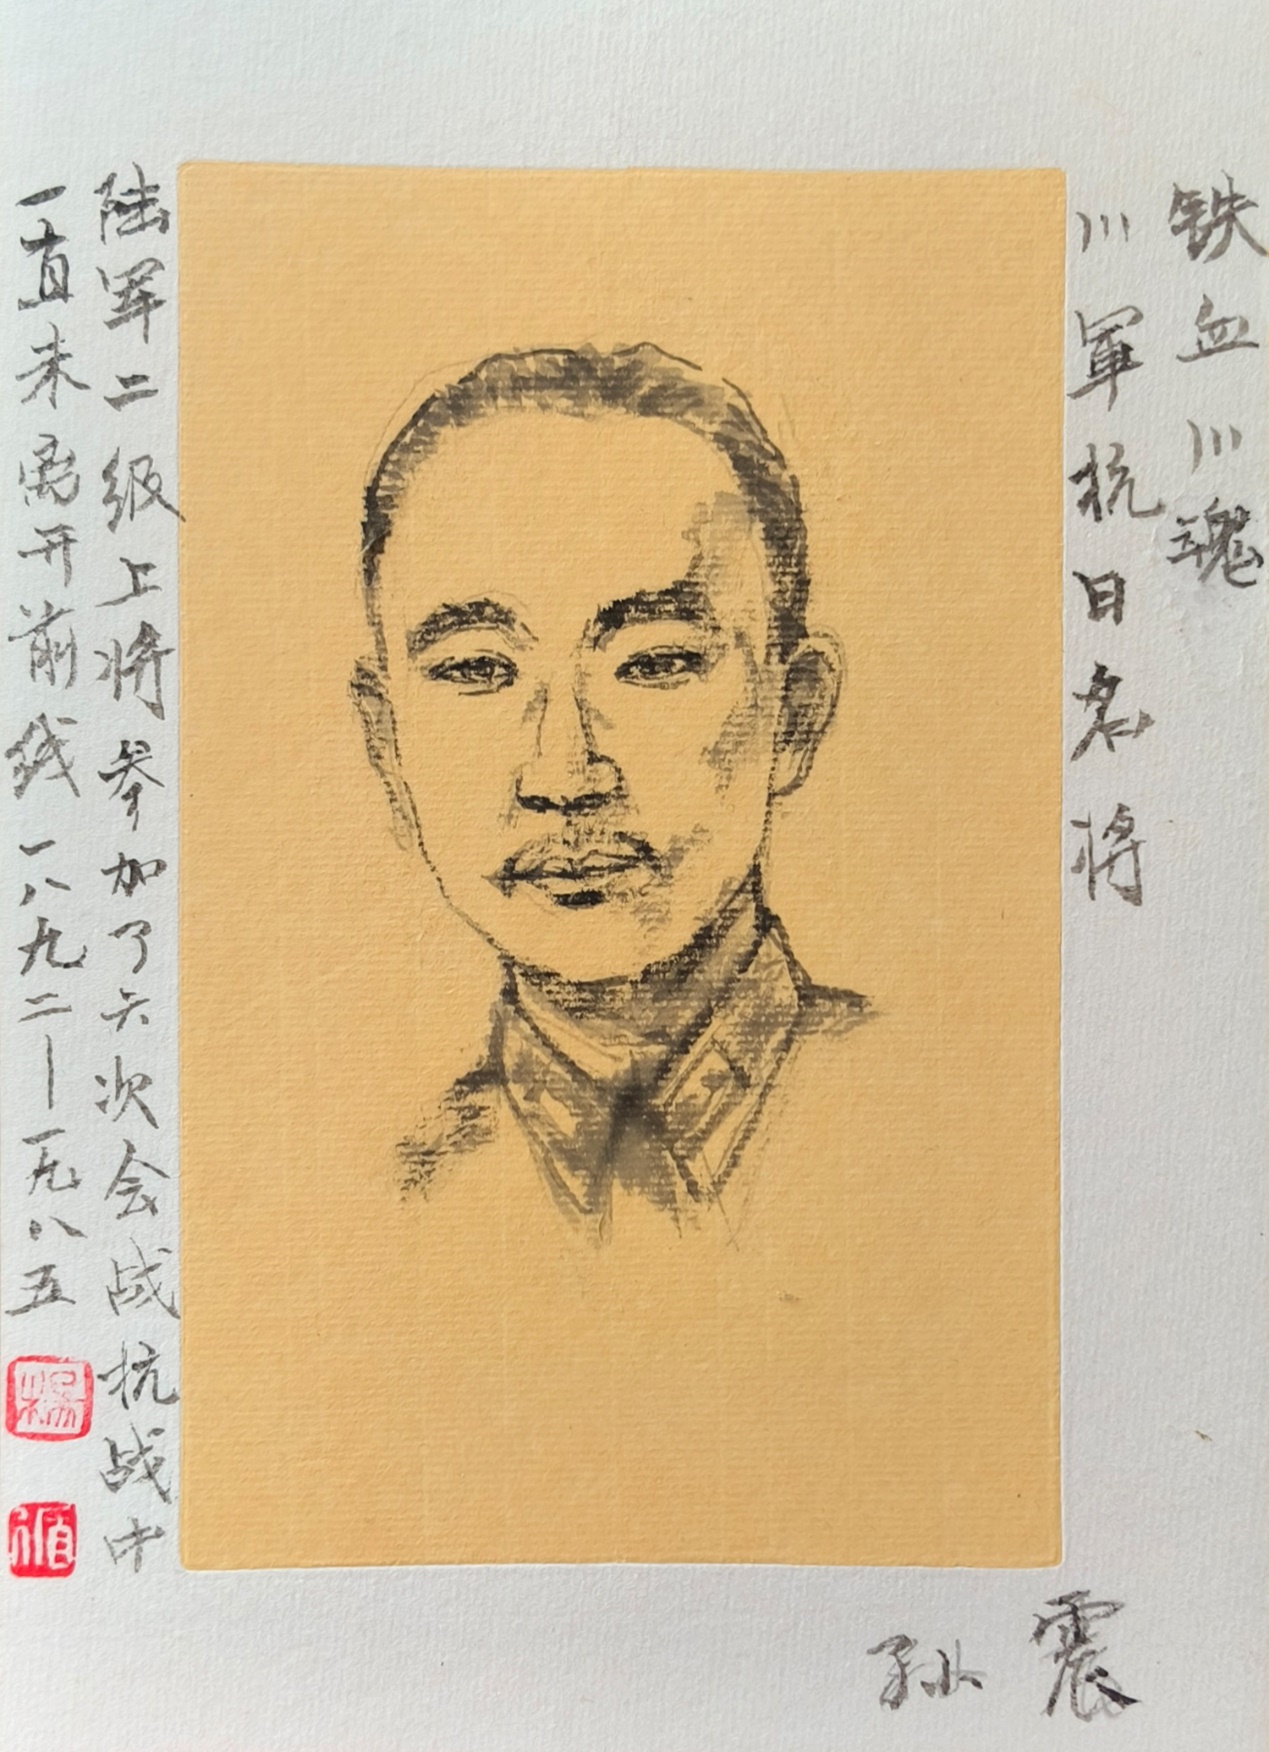 铁血川魂
川軍抗日名将
陆军二级上将参加了六次会战抗战中
一直未离开前线一八九二—一九八五
孙震